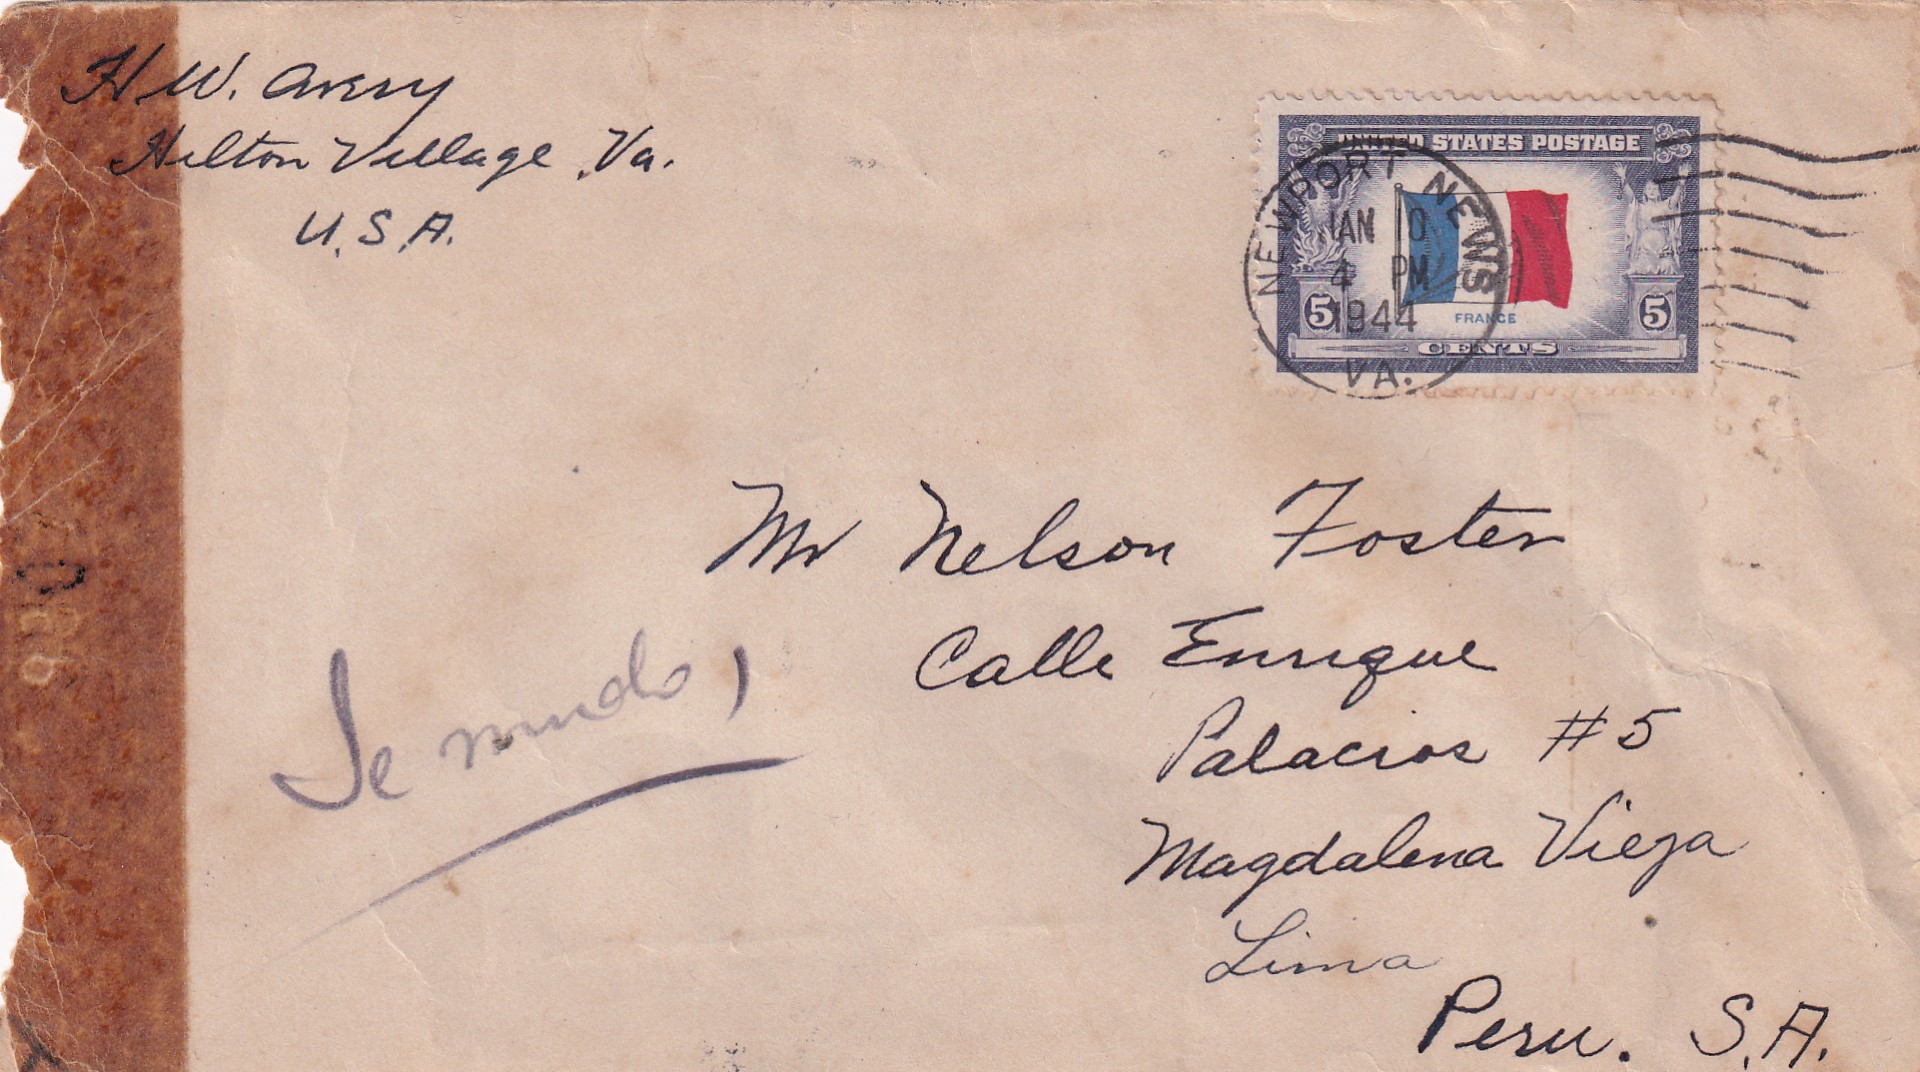 H W. Avery
Hilton Village, Va.
U.S.A.
UNITED STATES POSTAGE
NEWPORT NEWS
JAN 0
4 PM
1944
VA.
5 5
FRANCE
CENTS
Mr Nelson Foster
Calle Enrique
Palacios #5
Magdalena Vieja
Lima
Peru. S.A.
Se mudo,